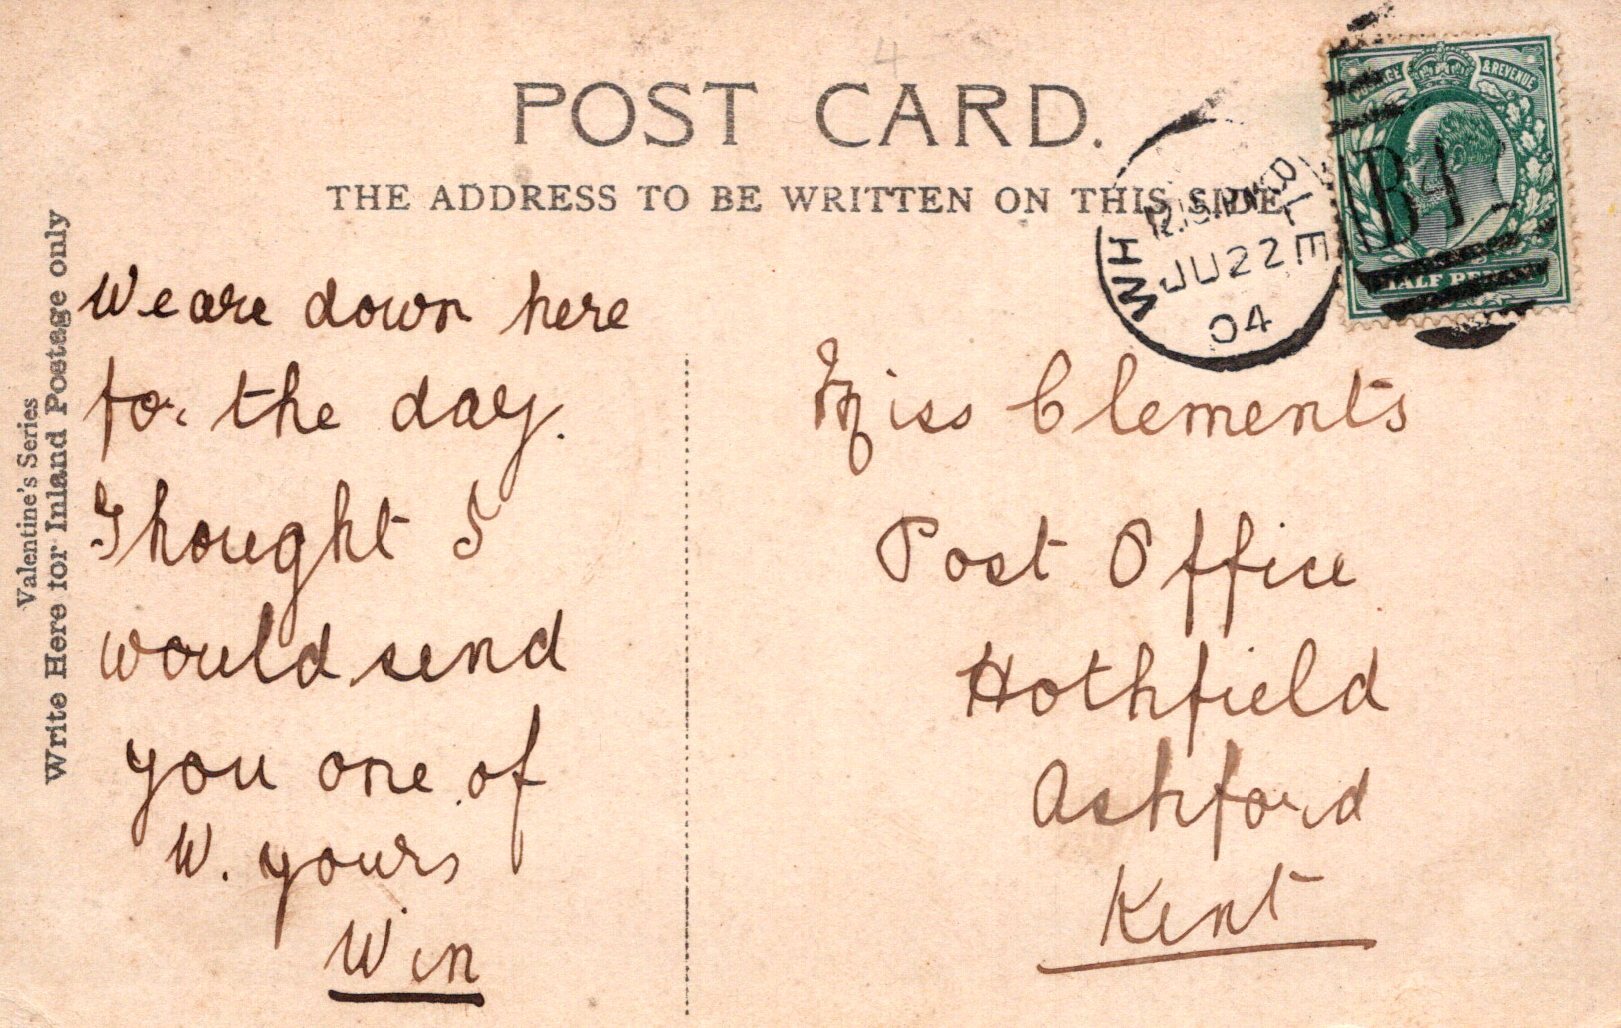 POST CARD.
THE ADDRESS TO BE WRITTEN ON THIS SIDE
Valentine's Series
Write Here for Inland Postage only
We are down here
for the day.
Thought I
would send
you one of
W. yours
Win
Miss Clements
Post Office
Hothfield
Ashford
Kent
JU 22
04
& REVENUE
HALF PENNY
4